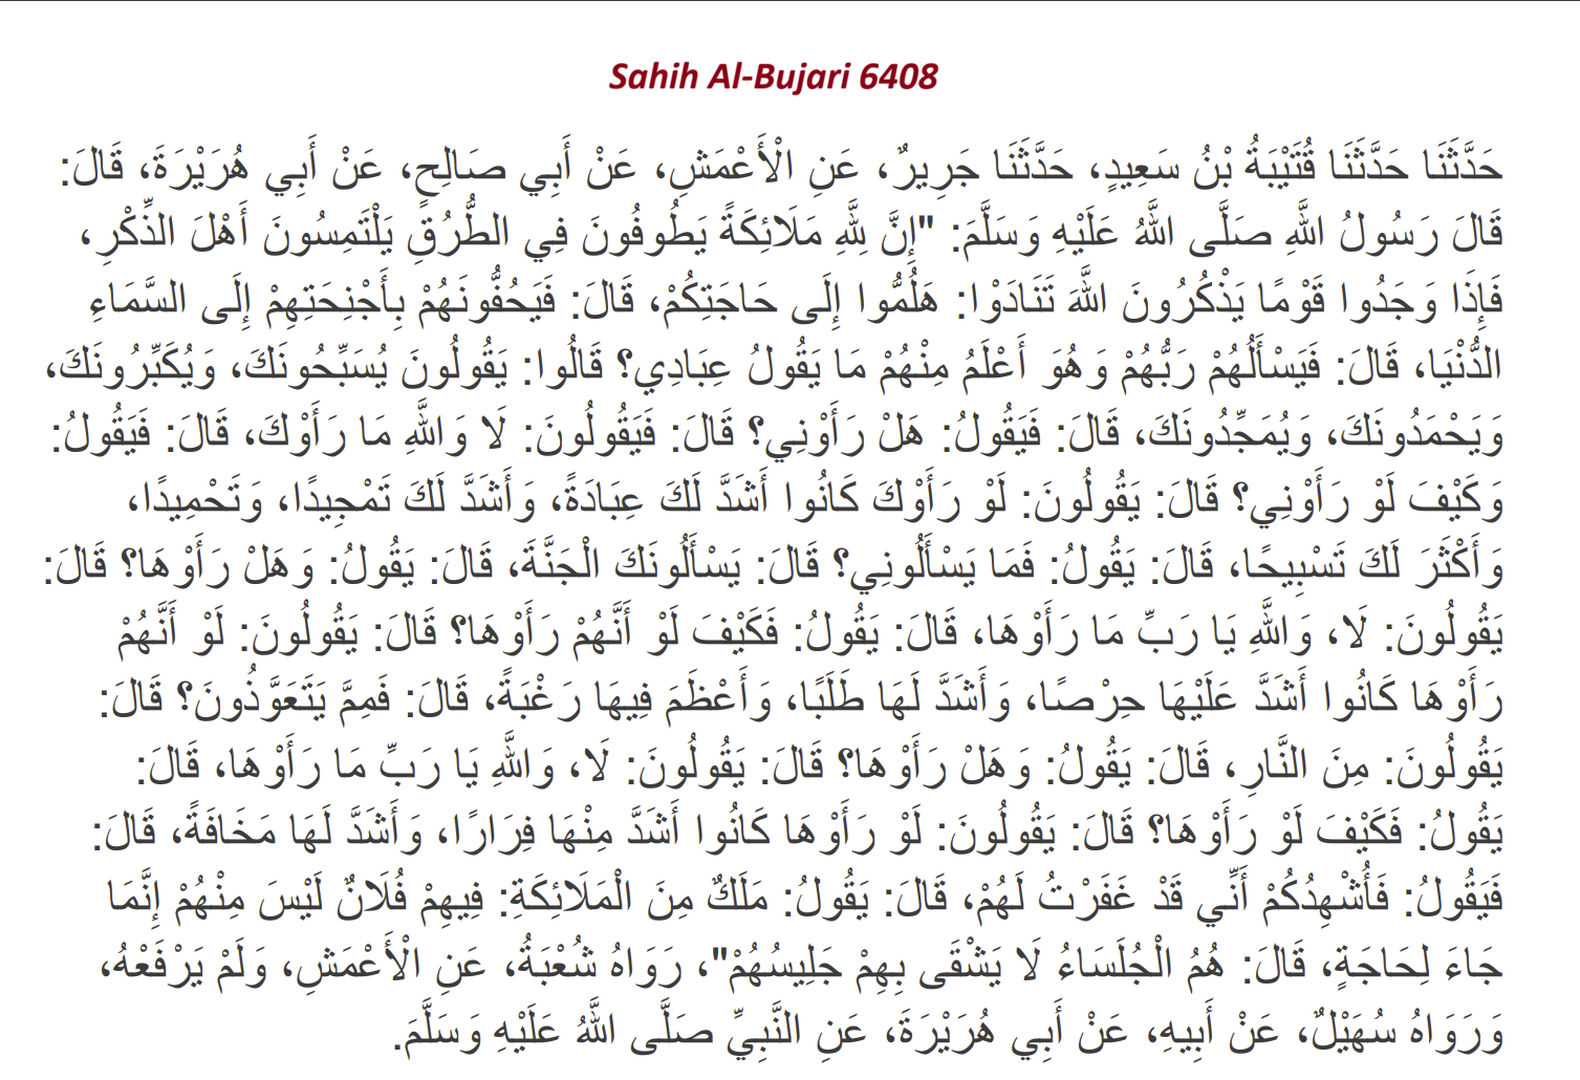 Sahih Al-Bujari 6408
حَدَّثَنَا حَدَّثَنَا قُتَيْبَةُ بْنُ سَعِيدٍ، حَدَّثَنَا جَرِيرٌ، عَنِ الْأَعْمَشِ، عَنْ أَبِي صَالِحٍ، عَنْ أَبِي هُرَيْرَةَ، قَالَ:
قَالَ رَسُولُ اللَّهِ صَلَّى اللَّهُ عَلَيْهِ وَسَلَّمَ: "إِنَّ لِلَّهِ مَلَائِكَةً يَطُوفُونَ فِي الطُّرُقِ يَلْتَمِسُونَ أَهْلَ الذِّكْرِ،
فَإِذَا وَجَدُوا قَوْمًا يَذْكُرُونَ اللَّهَ تَنَادَوْا: هَلُمُّوا إِلَى حَاجَتِكُمْ، قَالَ: فَيَحُفُّونَهُمْ بِأَجْنِحَتِهِمْ إِلَى السَّمَاءِ
الدُّنْيَا، قَالَ: فَيَسْأَلُهُمْ رَبُّهُمْ وَهُوَ أَعْلَمُ مِنْهُمْ مَا يَقُولُ عِبَادِي؟ قَالُوا: يَقُولُونَ يُسَبِّحُونَكَ، وَيُكَبِّرُونَكَ،
وَيَحْمَدُونَكَ، وَيُمَجِّدُونَكَ، قَالَ: فَيَقُولُ: هَلْ رَأَوْنِي؟ قَالَ: فَيَقُولُونَ: لَا وَاللَّهِ مَا رَأَوْكَ، قَالَ: فَيَقُولُ:
وَكَيْفَ لَوْ رَأَوْنِي؟ قَالَ: يَقُولُونَ: لَوْ رَأَوْكَ كَانُوا أَشَدَّ لَكَ عِبَادَةً، وَأَشَدَّ لَكَ تَمْجِيدًا، وَتَحْمِيدًا،
وَأَكْثَرَ لَكَ تَسْبِيحًا، قَالَ: يَقُولُ: فَمَا يَسْأَلُونِي؟ قَالَ: يَسْأَلُونَكَ الْجَنَّةَ، قَالَ: يَقُولُ: وَهَلْ رَأَوْهَا؟ قَالَ:
يَقُولُونَ: لَا، وَاللَّهِ يَا رَبِّ مَا رَأَوْهَا، قَالَ: يَقُولُ: فَكَيْفَ لَوْ أَنَّهُمْ رَأَوْهَا؟ قَالَ: يَقُولُونَ: لَوْ أَنَّهُمْ
رَأَوْهَا كَانُوا أَشَدَّ عَلَيْهَا حِرْصًا، وَأَشَدَّ لَهَا طَلَبًا، وَأَعْظَمَ فِيهَا رَغْبَةً، قَالَ: فَمِمَّ يَتَعَوَّذُونَ؟ قَالَ:
يَقُولُونَ: مِنَ النَّارِ، قَالَ: يَقُولُ: وَهَلْ رَأَوْهَا؟ قَالَ: يَقُولُونَ: لَا، وَاللَّهِ يَا رَبِّ مَا رَأَوْهَا، قَالَ:
يَقُولُ: فَكَيْفَ لَوْ رَأَوْهَا؟ قَالَ: يَقُولُونَ: لَوْ رَأَوْهَا كَانُوا أَشَدَّ مِنْهَا فِرَارًا، وَأَشَدَّ لَهَا مَخَافَةً، قَالَ:
فَيَقُولُ: فَأُشْهِدُكُمْ أَنِّي قَدْ غَفَرْتُ لَهُمْ، قَالَ: يَقُولُ: مَلَكٌ مِنَ الْمَلَائِكَةِ: فِيهِمْ فُلَانٌ لَيْسَ مِنْهُمْ إِنَّمَا
جَاءَ لِحَاجَةٍ، قَالَ: هُمُ الْجُلَسَاءُ لَا يَشْقَى بِهِمْ جَلِيسُهُمْ"، رَوَاهُ شُعْبَةُ، عَنِ الْأَعْمَشِ، وَلَمْ يَرْفَعْهُ،
وَرَوَاهُ سُهَيْلٌ، عَنْ أَبِيهِ، عَنْ أَبِي هُرَيْرَةَ، عَنِ النَّبِيِّ صَلَّى اللَّهُ عَلَيْهِ وَسَلَّمَ.